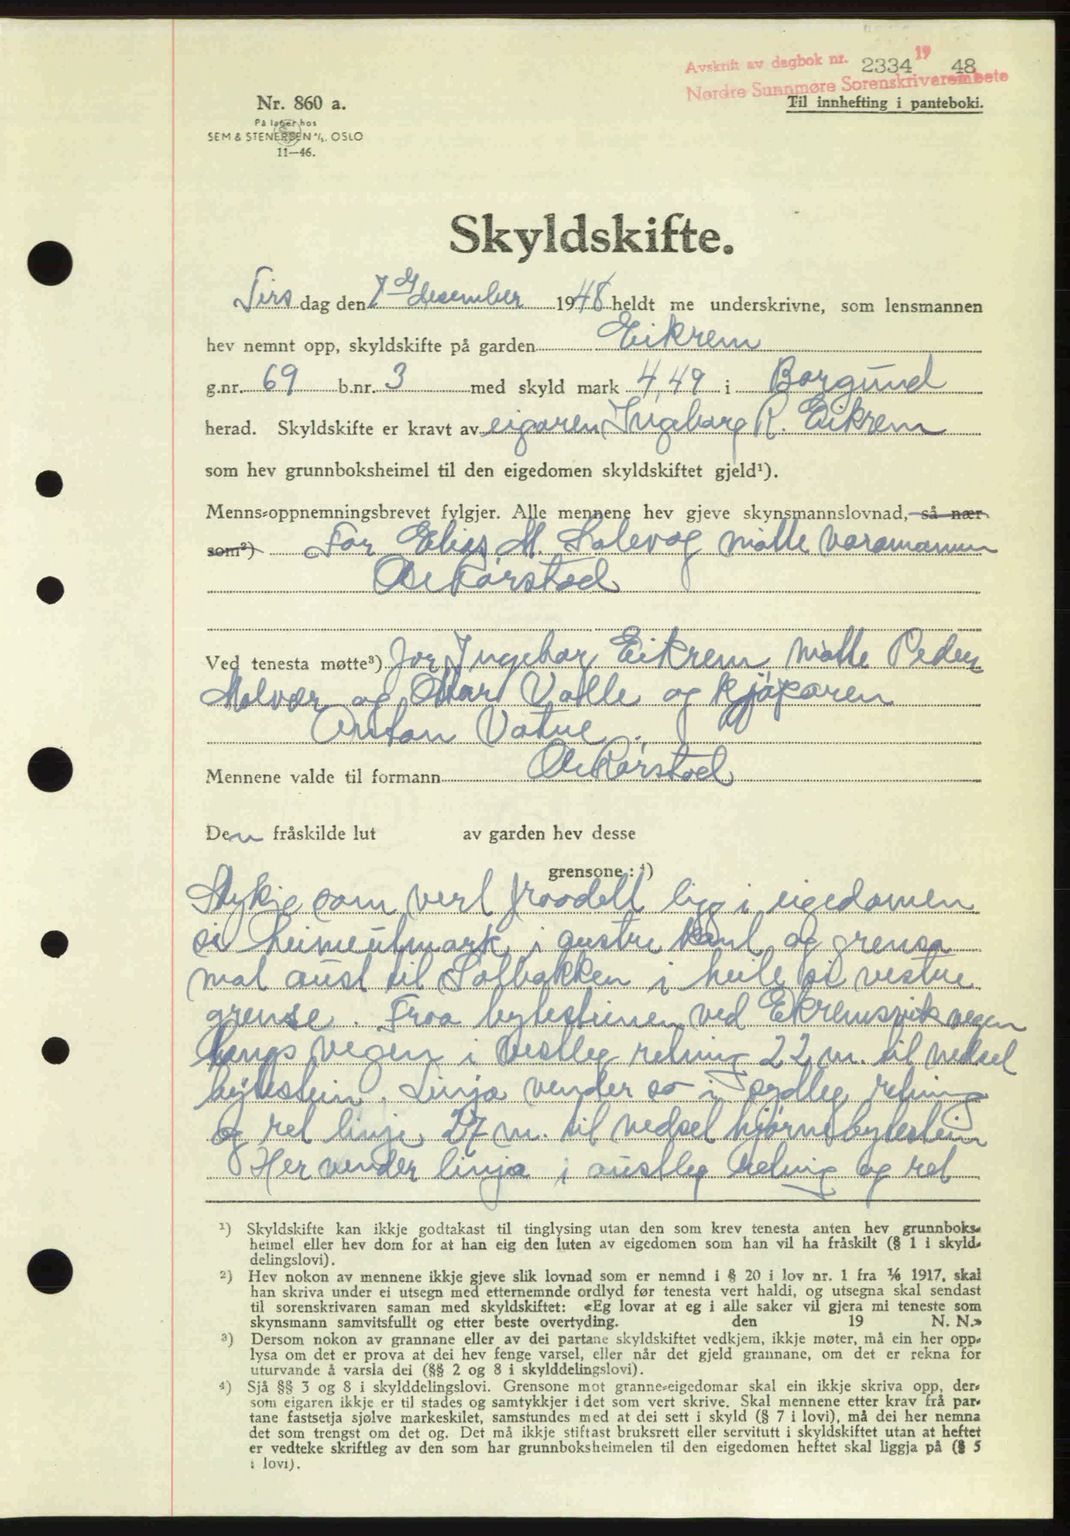 Avskrift av dagbok nr. 2334 19 48
Nordre Sunnmøre Sorenskriverembete
Nr. 860 a.
Til innhefting i panteboki.
På lager hos
SEM & STENERSEN A/S. OSLO
11—46.
Skyldskifte.
Tirsdag den 7 desember 1948 heldt me underskrivne, som lensmannen
hev nemnt opp, skyldskifte på garden Eikrem
g.nr. 69 b.nr. 3 med skyld mark 4,49 i Borgund
herad. Skyldskifte er kravt av eigaren, Ingeborg R. Eikrem
som hev grunnboksheimel til den eigedomen skyldskiftet gjeld¹).
Menns-oppnemningsbrevet fylgjer. Alle mennene hev gjeve skynsmannslovnad, så nær
som²) For Elias M. Solevog møtte varamann
Ole Korstad
Ved tenesta møtte³) for Ingebor Eikrem møtte Peder
Molvær og Ottar Valle og kjøparen
Anton Vatne.
Mennene valde til formann Ole Korstad
Den fråskilde lut av garden hev desse
grensone: ⁴)
Stykje som vert fraadelt ligg i eigedomen
si heimeutmark i austre kant og grensa
mot aust til Solbakken i heile si vestre
grense. Fraa bytesteinen ved Ekremsvikvegen
langs vegen i vestleg retning 22 m. til nedsel
bytestein. Linja vender so i sydleg retning
og ret linje 27 m. til nedsel hjørnebytestein
Her vender linja i austleg retning og ret
¹) Skyldskifte kan ikkje godtakast til tinglysing utan den som krev tenesta anten hev grunnboks-
heimel eller hev dom for at han eig den luten av eigedomen som han vil ha fråskilt (§ 1 i skyld-
delingslovi).
²) Hev nokon av mennene ikkje gjeve slik lovnad som er nemnd i § 20 i lov nr. 1 fra 1/6 1917, skal
han skriva under ei utsegn med etternemnde ordlyd før tenesta vert haldi, og utsegna skal sendast
til sorenskrivaren saman med skyldskiftet: «Eg lovar at eg i alle saker vil gjera mi teneste som
skynsmann samvitsfullt og etter beste overtyding. den 19 N. N.»
³) Dersom nokon av grannane eller av dei partane skyldskiftet vedkjem, ikkje møter, må ein her opp-
lysa om det er prova at dei hev fenge varsel, eller når det gjeld grannane, om det er rekna for
uturvande å varsla dei (§§ 2 og 8 i skylddelingslovi).
⁴) Sjå §§ 3 og 8 i skylddelingslovi. Grensone mot granne-eigedomar skal ein ikkje skriva opp, der-
som eigaren ikkje er til stades og samtykkjer i det som vert skrive. Skal mennene etter krav frå par-
tane fastsetja sjølve markeskilet, samstundes med at dei sett i skyld (§ 7 i lovi), må dei her nemna
det som trengst om det og. Det må ikkje stiftast bruksrett eller servitutt i skyldskiftet utan at heftet
er vedteke skriftleg av den som har grunnboksheimelen til den eigedomen heftet skal liggja på (§ 5
i lovi).